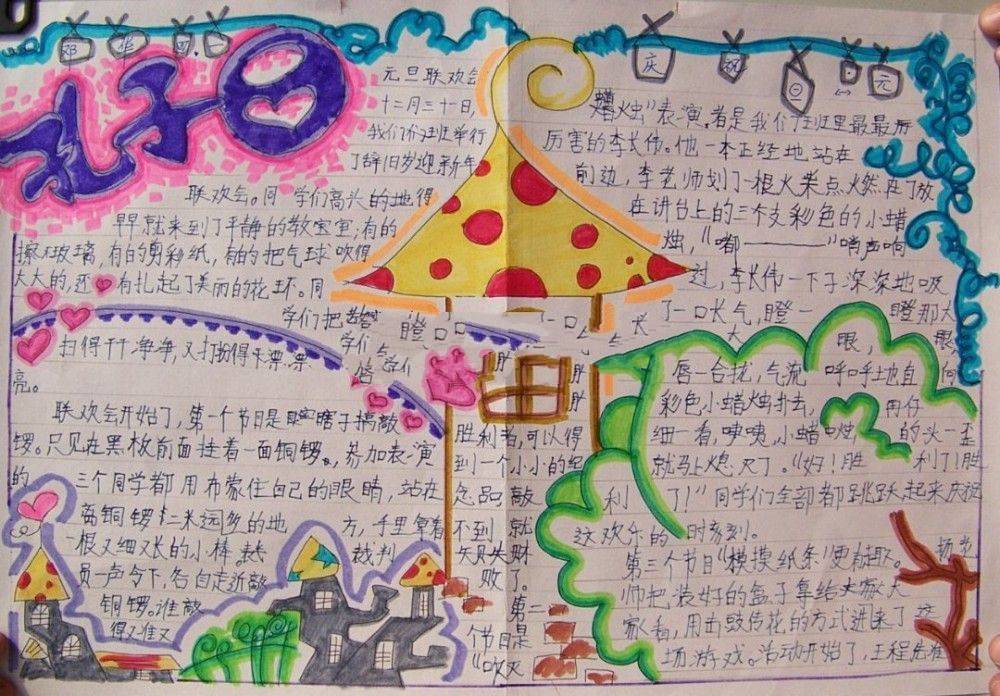 邓华
孔子日
庆祝
元旦
元旦联欢会
十二月三十一日,
我们们班举行
了辞旧岁迎新年
联欢会。同学们高兴的地得
早就来到了平静的教室里;有的
擦玻璃,有的剪彩纸,有的把气球吹得
大大的,还有扎起了美丽的花环。同
学们把
扫得干干净净,又打扮得
亮。
联欢会开始了,第一个节目是瞎子搞敲
锣。只见在黑板前面挂着一面铜锣。参加表演
的三个同学都用布蒙住自己的眼睛,站在
离铜锣二米远的地方,手里拿着
一根又细又长的小棒,裁判
员一声令下,各自走近敲
铜锣。谁敲
得又准又
胜利者,可以得
到一个小小的纪
念品,敲
不到就
失败
了。
第二
个节目是
“吹灭
蜡烛”表演。看是我们班里最最厉
厉害的李长伟。他一本正经地站在
前边,李老师划了一根火柴点燃了放
在讲台上的三个支彩色的小蜡
烛,“嘟————”哨声响
过,李长伟一下子深深地吸
了一口长气,瞪一瞪那大
大眼,
唇一合拢,气流呼呼地直向
彩色小蜡烛扑去,仔
细一看,咦咦,小蜡烛的头一歪
就马上熄灭了。“好!胜利了!胜
利了!”同学们全部都跳跃起来庆祝
这欢乐的时刻。
第三个节目“模摸纸条”更有趣。杨老
师把装好的盒子拿给大家大
家看,用击鼓传花的方式进来了这
场游戏。活动开始了,王程先准